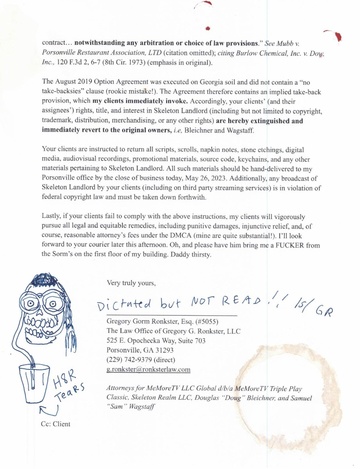 contract… notwithstanding any arbitration or choice of law provisions." See Mubb v.
Porsonville Restaurant Association, LTD (citation omitted), citing Burlow Chemical, Inc. v. Dog,
Inc., 120 F.3d 2, 6-7 (8th Cir. 1973) (emphasis in original).
The August 2019 Option Agreement was executed on Georgia soil and did not contain a "no
take-backsies" clause (rookie mistake!). The Agreement therefore contains an implied take-back
provision, which my clients immediately invoke. Accordingly, your clients' (and their
assignees') rights, title, and interest in Skeleton Landlord (including but not limited to copyright,
trademark, distribution, merchandising, or any other rights) are hereby extinguished and
immediately revert to the original owners, i.e. Bleichner and Wagstaff.
Your clients are instructed to return all scripts, scrolls, napkin notes, stone etchings, digital
media, audiovisual recordings, promotional materials, source code, keychains, and any other
materials pertaining to Skeleton Landlord. All such materials should be hand-delivered to my
Porsonville office by the close of business today, May 26, 2023. Additionally, any broadcast of
Skeleton Landlord by your clients (including on third party streaming services) is in violation of
federal copyright law and must be taken down forthwith.
Lastly, if your clients fail to comply with the above instructions, my clients will vigorously
pursue all legal and equitable remedies, including punitive damages, injunctive relief, and, of
course, reasonable attorney's fees under the DMCA (mine are quite substantial!). I'll look
forward to your courier later this afternoon. Oh, and please have him bring me a FUCKER from
the Sorm's on the first floor of my building. Daddy thirsty.
Very truly yours,
Dictated but NOT READ!! /s/ GR
Gregory Gorm Ronkster, Esq. (#5055)
The Law Office of Gregory G. Ronkster, LLC
525 E. Opocheeka Way, Suite 703
Porsonville, GA 31293
(229) 742-9379 (direct)
g.ronkster@ronksterlaw.com
H&R
TEARS
Attorneys for MeMoreTV LLC Global d/b/a MeMoreTV Triple Play
Classic, Skeleton Realm LLC, Douglas "Doug" Bleichner, and Samuel
"Sam" Wagstaff
Cc: Client